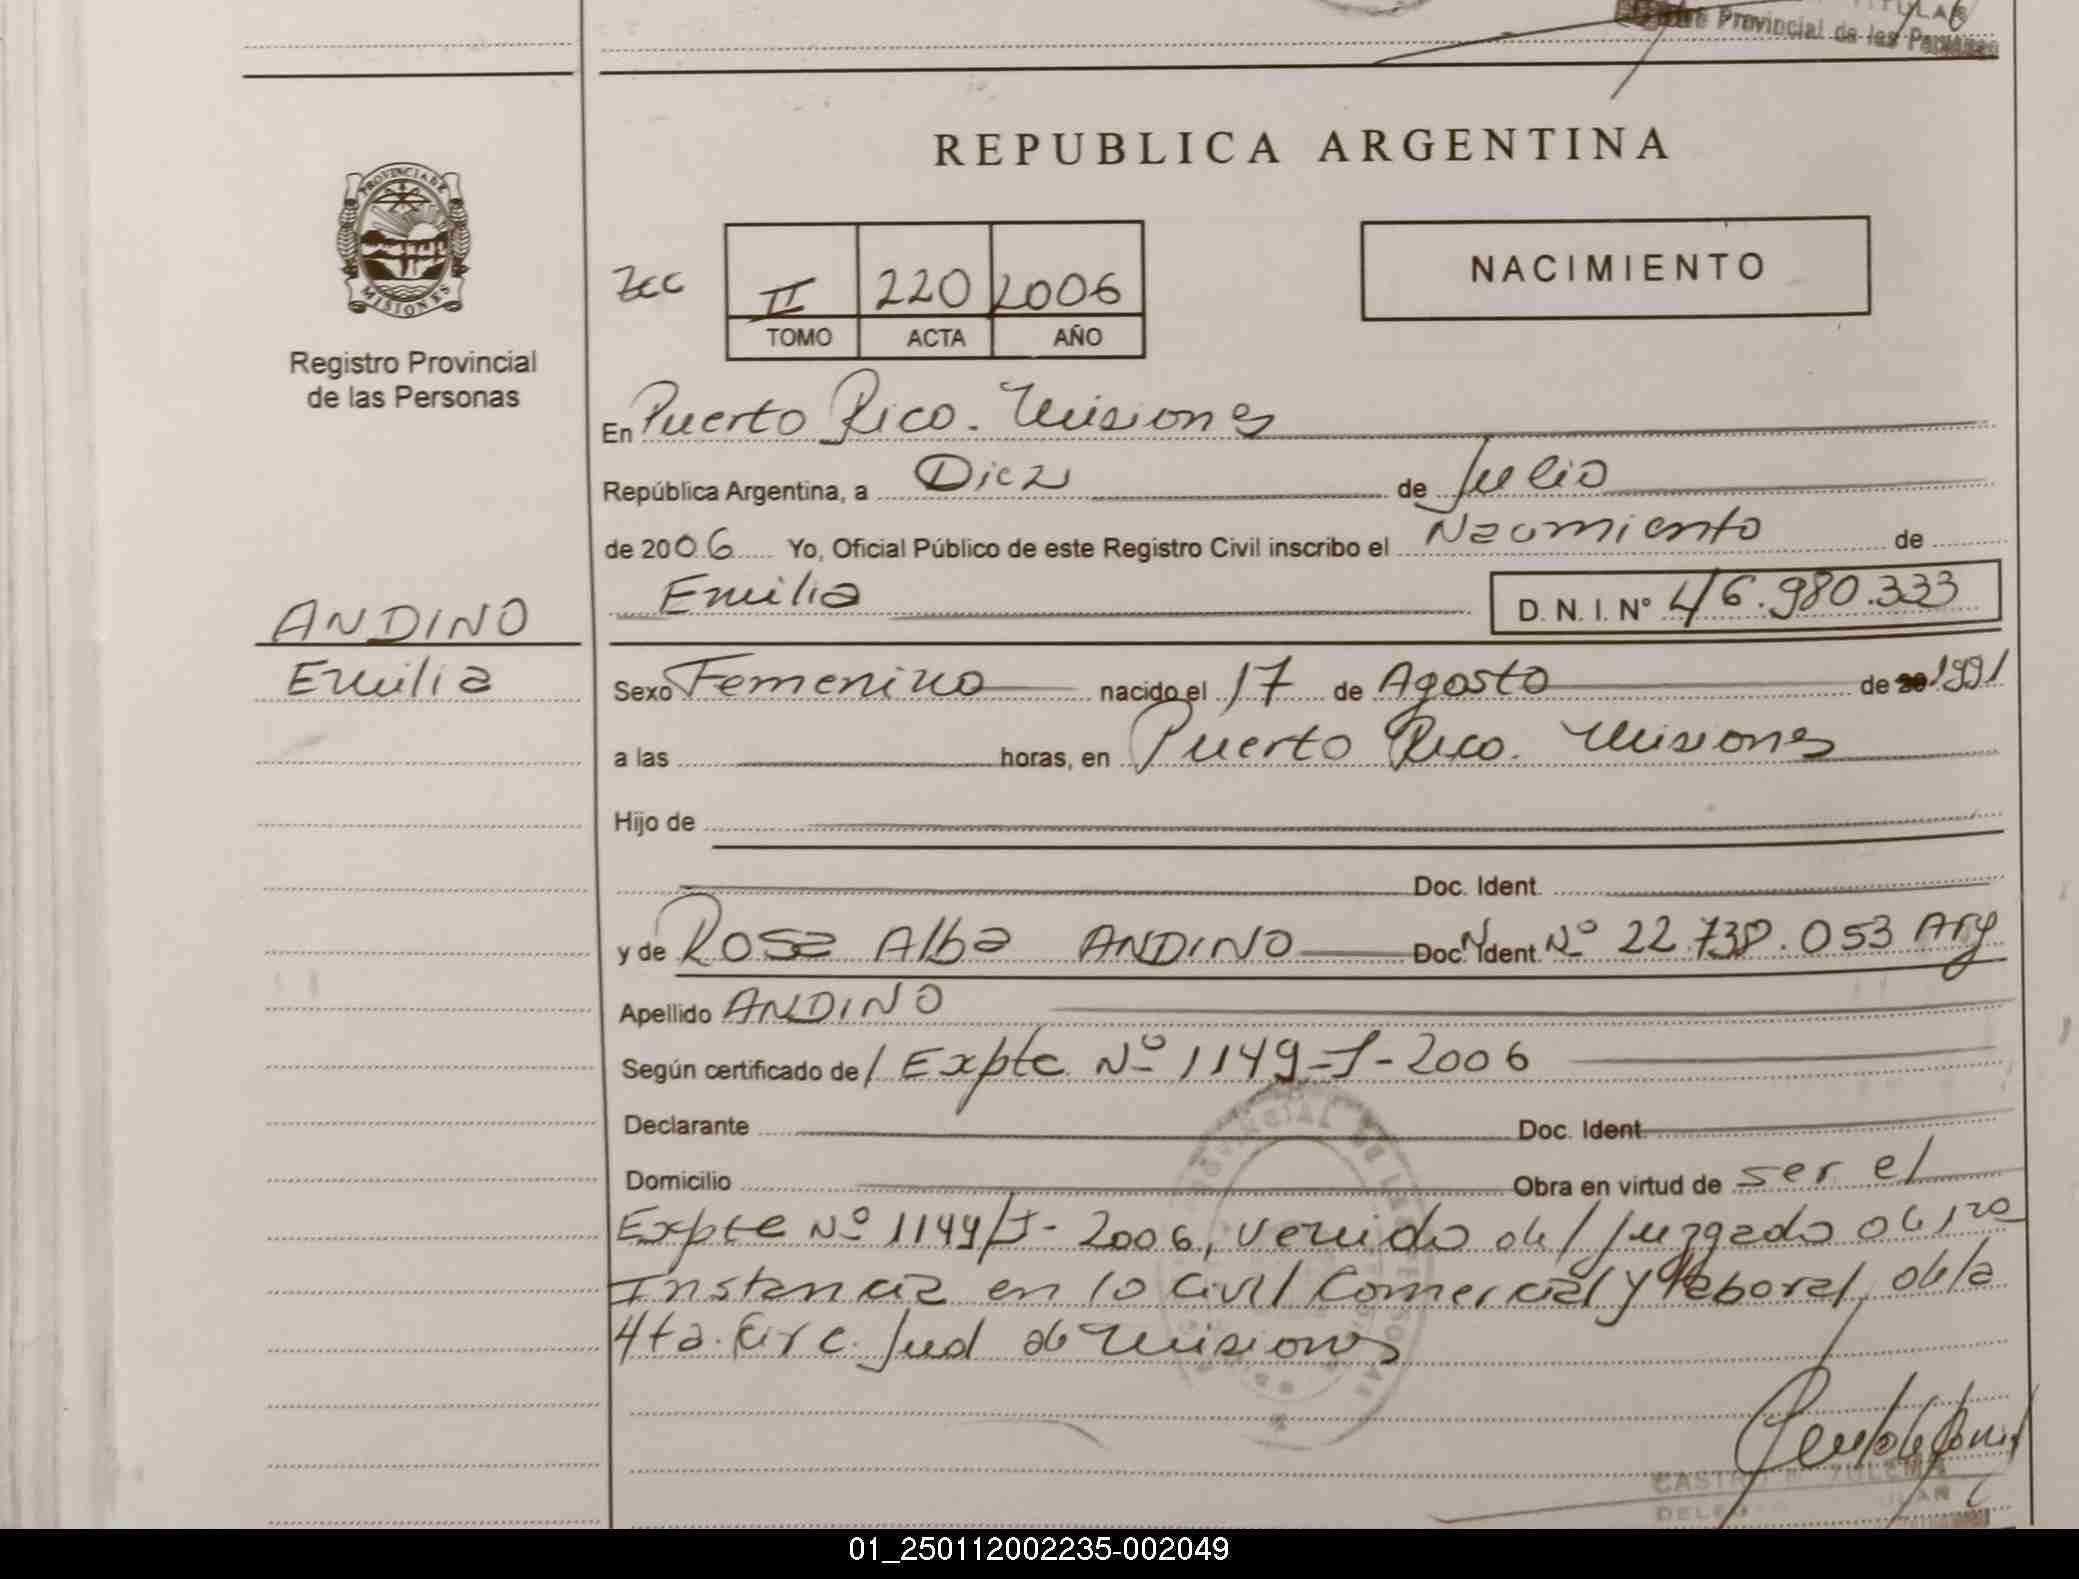 Provincial de las Personas
REPUBLICA ARGENTINA
PROVINCIA DE
MISIONES
Registro Provincial
de las Personas
II 220 2006
TOMO ACTA AÑO
NACIMIENTO
En Puerto Rico. Misiones
República Argentina, a Diez de Julio
de 2006 Yo, Oficial Público de este Registro Civil inscribo el Nacimiento de
Emilia D. N. I. Nº 46.980.333
ANDINO
Emilia
Sexo Femenino nacido el 17 de Agosto de 1991
a las horas, en Puerto Rico. Misiones
Hijo de
Doc. Ident.
y de Rosa Alba ANDINO Doc. Ident. Nº 22.738.053 Arg
Apellido ANDINO
Según certificado de / Expte Nº 1149-J-2006
Declarante Doc. Ident.
Domicilio Obra en virtud de ser el
Expte Nº 1149/J-2006, venido del Juzgado de 1ra
Instancia en lo Civil Comercial y Laboral, de la
4ta. Circ. Jud de Misiones
CASTRO ZULEMA
01_250112002235-002049